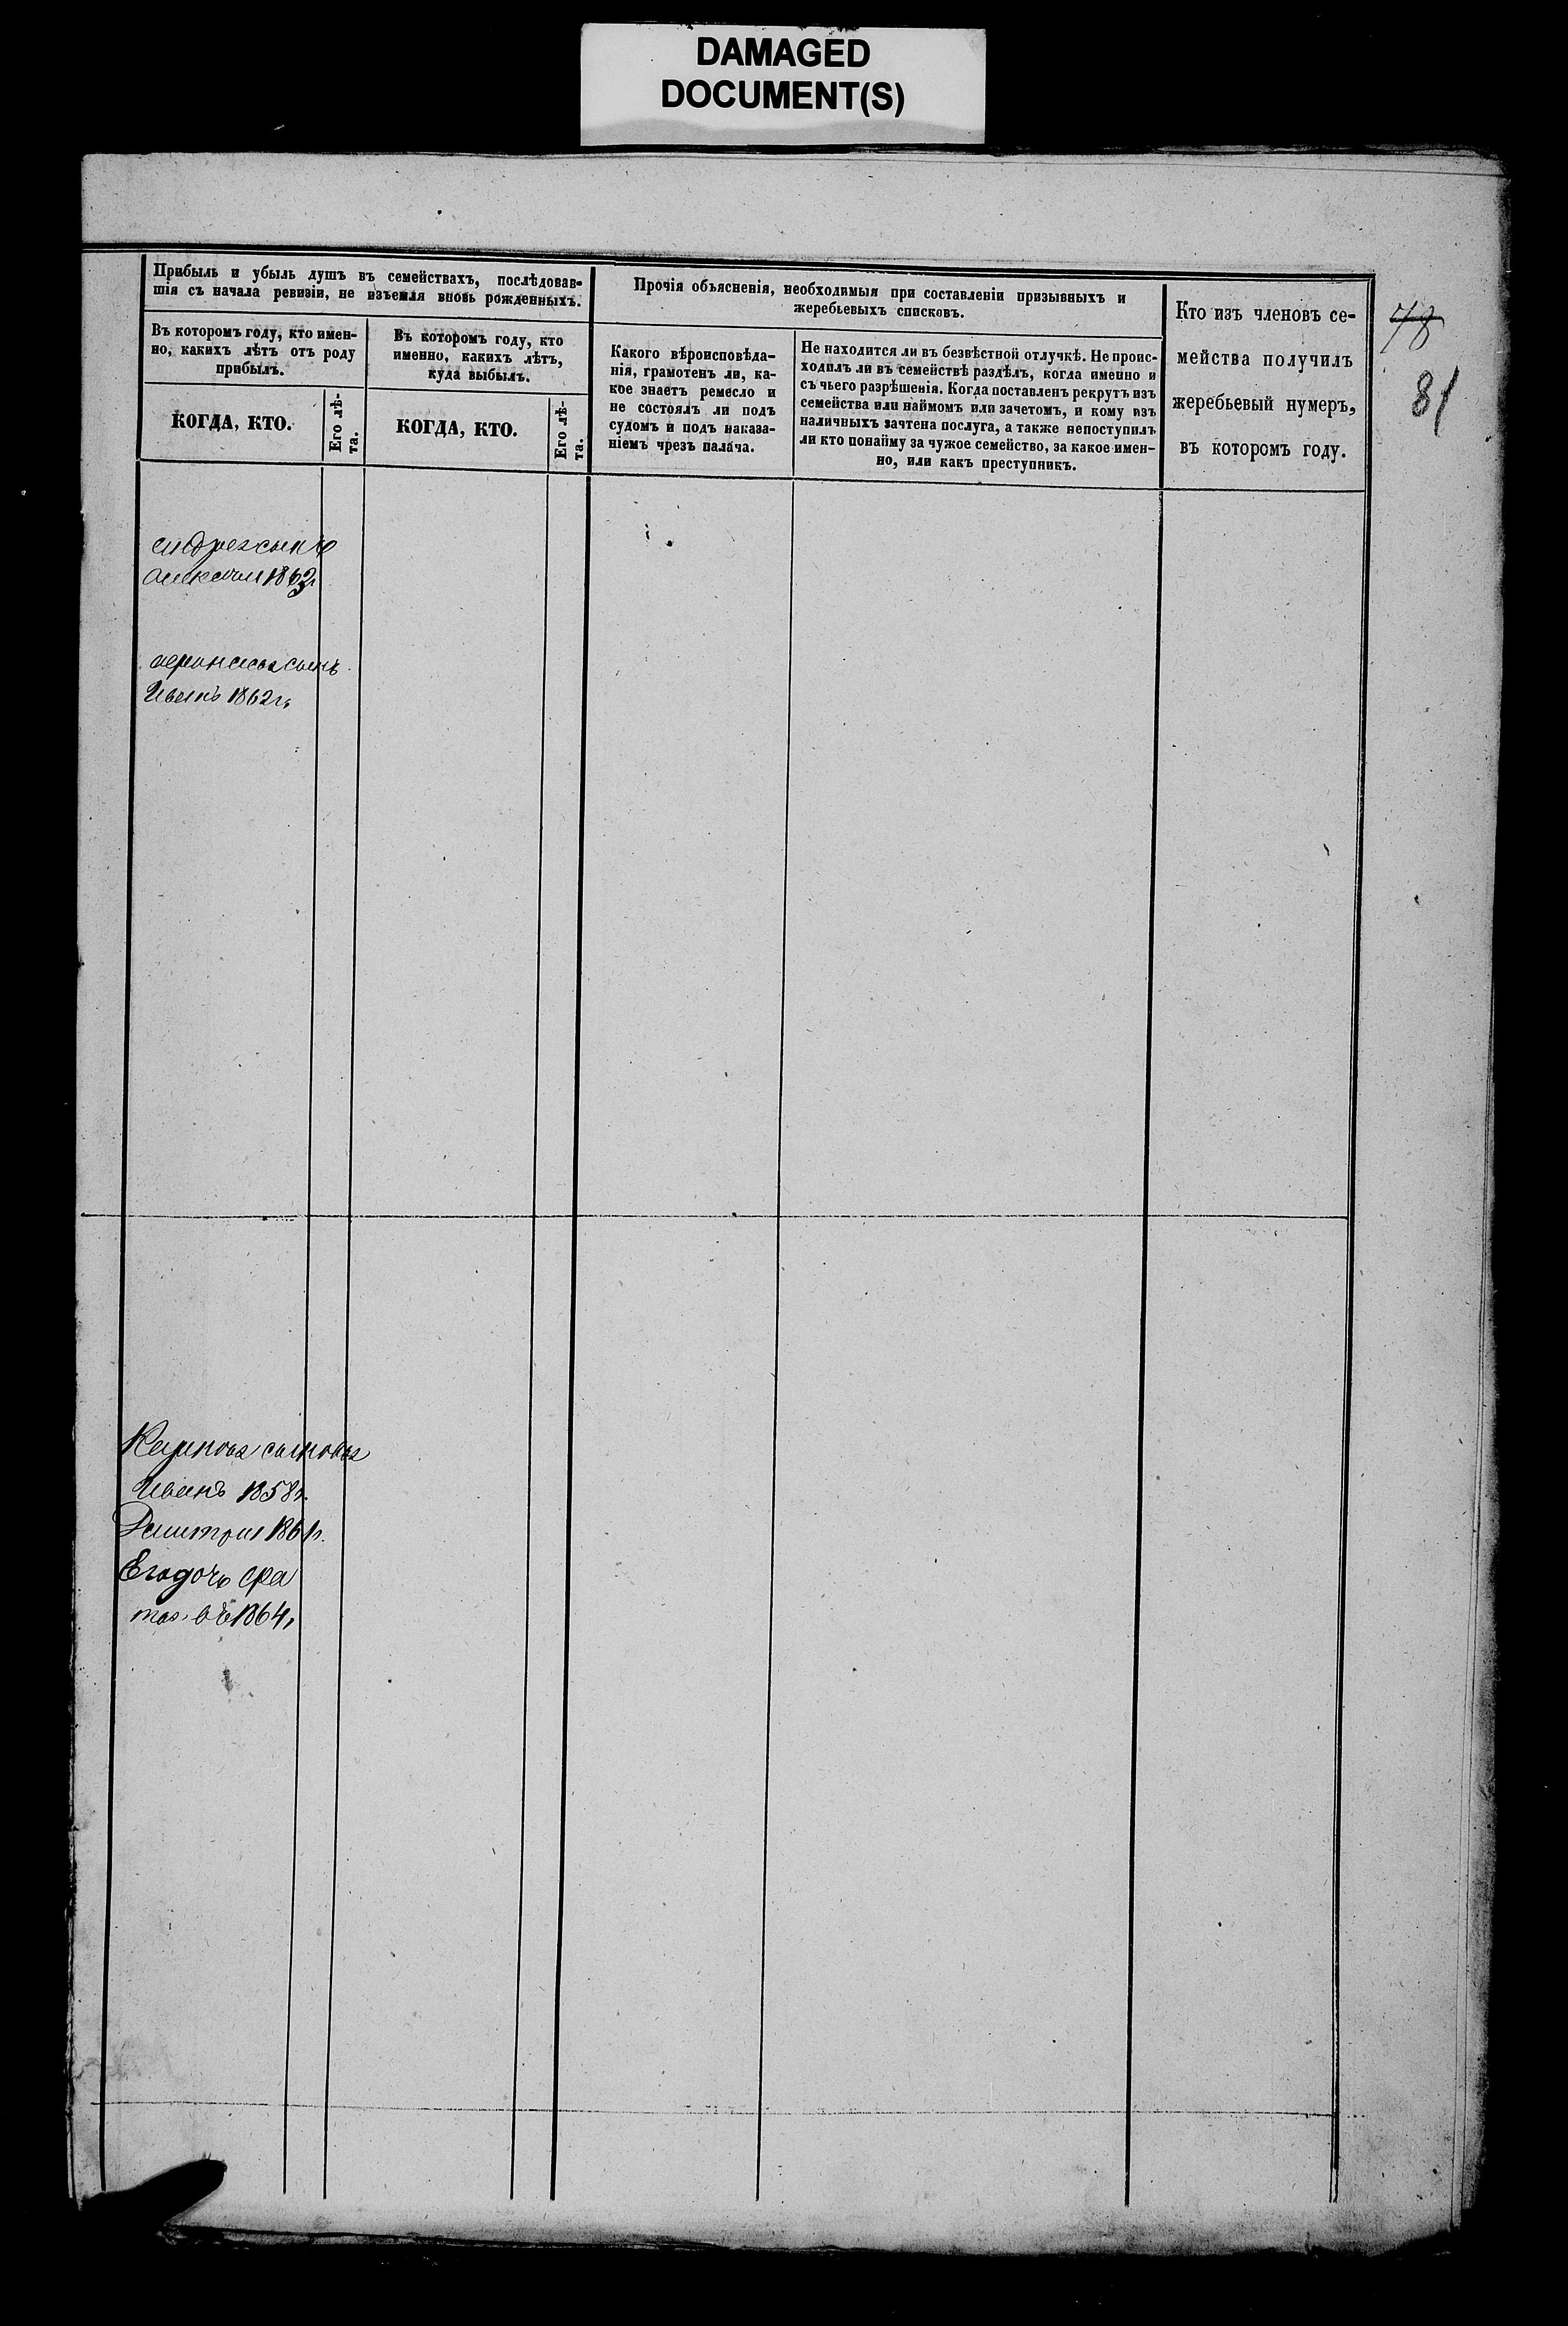 DAMAGED
DOCUMENT(S)
Прибыль и убыль душъ въ семействахъ, послѣдовав-
шія съ начала ревизіи, не изъемля вновь рожденныхъ.
Въ которомъ году, кто имен-
но, какихъ лѣтъ отъ роду
прибылъ.
КОГДА, КТО.
Его лѣ-
та.
Въ которомъ году, кто
именно, какихъ лѣтъ,
куда выбылъ.
КОГДА, КТО.
Его лѣ-
та.
Прочія объясненія, необходимыя при составленіи призывныхъ и
жеребьевыхъ списковъ.
Какого вѣроисповѣда-
нія, грамотенъ ли, ка-
кое знаетъ ремесло и
не состоялъ ли подъ
судомъ и подъ наказа-
ніемъ чрезъ палача.
Не находится ли въ безвѣстной отлучкѣ. Не проис-
ходилъ ли въ семействѣ раздѣлъ, когда именно и
съ чьего разрѣшенія. Когда поставленъ рекрутъ изъ
семейства или наймомъ или зачетомъ, и кому изъ
наличныхъ зачтена послуга, а также непоступилъ
ли кто понайму за чужое семейство, за какое имен-
но, или какъ преступникъ.
Кто изъ членовъ се-
мейства получилъ
жеребьевый нумеръ,
въ которомъ году.
78
81
сынъ
1863
сынъ
Иванъ 1862 г.
Карпова сыновья
Иванъ 1858 г.
Дмитрий 1861 г.
Его дочь
въ 1864